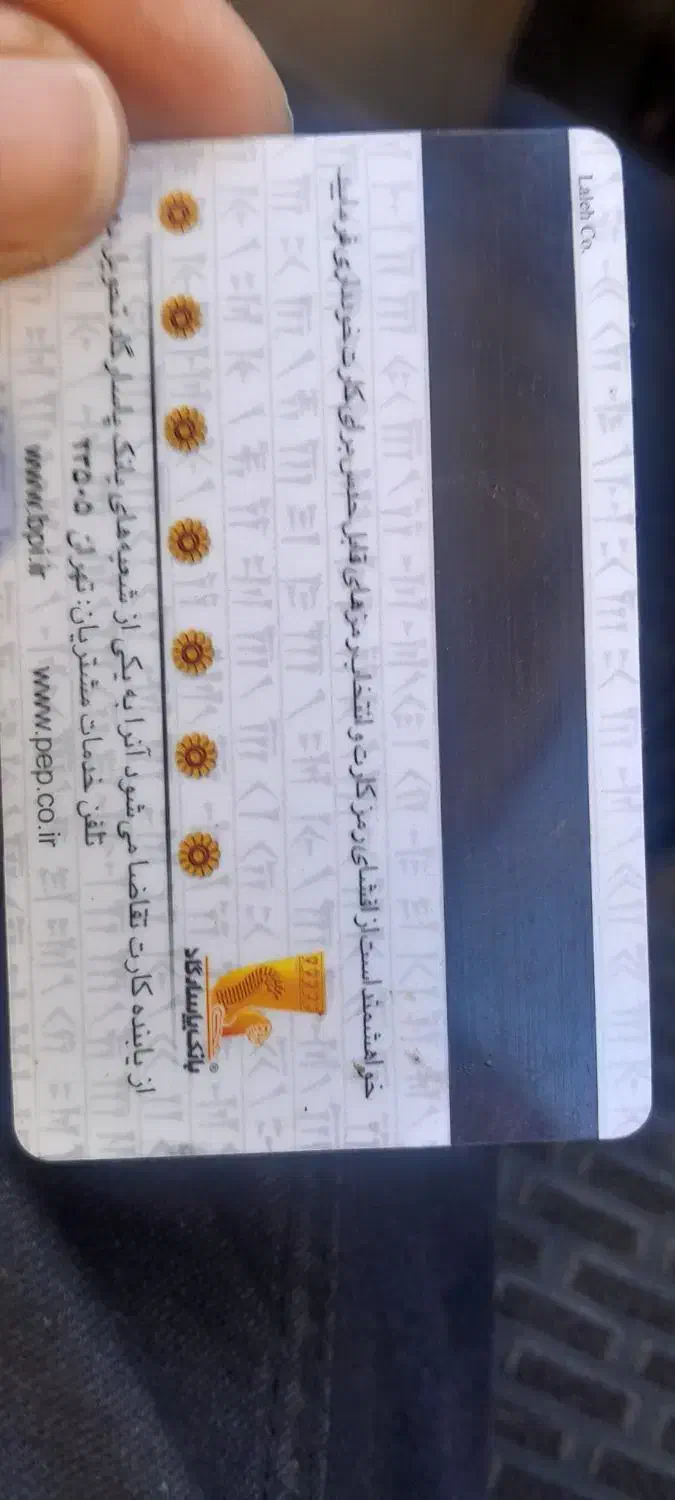 Laleh Co.
خواهشمند است از افشای رمز کارت و انتخاب رمزهای قابل حدس برای کارت خودداری فرمایید.
بانک پاسارگاد
از یابنده کارت تقاضا می شود آنرا به یکی از شعبه‌های بانک پاسارگاد تحویل
تلفن خدمات مشتریان: تهران
www.bpi.ir www.pep.co.ir